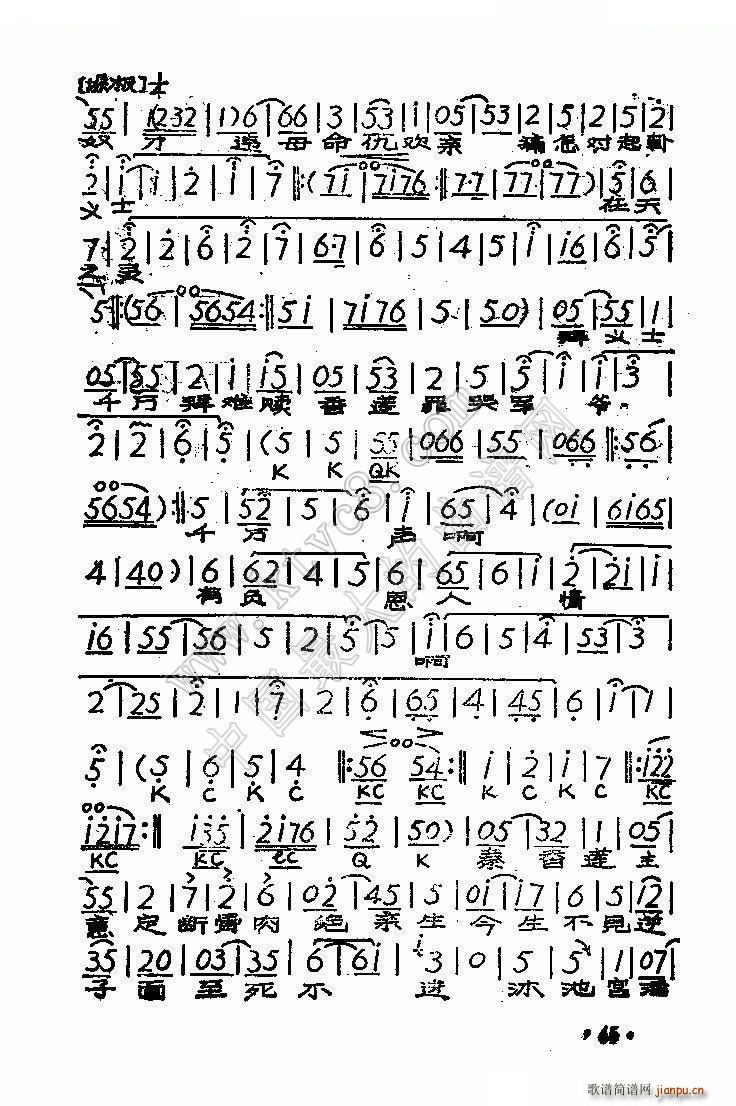 [垛板]¼
55 | (232 | 1)6 | 66 | 3 | 53 | i | 05 | 53 | 2 | 5 | 2 | 5 | 2 |
奴 才 违 母 命 仇 欢 亲 痛 怎 对 起 韩
2 | i | i | 2 | i | 7 ‖: (7i | 7i76 :‖ 7·7 | 77 | 77) | 5 | 6 |
义 士 在 天
7 | 2 | 2 | 6 | 2 | 7 | 6·7 | 6 | 5 | 4 | 5 | i | i6 | 6 | 5 |
之 灵
5 ‖: (56 | 5654 :‖ 5i | 7i76 | 5 | 50) | 05 | 55 | 1 |
拜 义 士
05 | 55 | 2 | i | i5 | 05 | 53 | 2 | 5 | 5 | i | 3 |
千 万 拜 难 赎 香 莲 罪 哭 军 爷
2 | 2 | 6 | 5 | (5 | 5 | 55 | 066 | 55 | 066 ‖: 56
K K QK
5654) :‖ 5 | 52 | 5 | 6 | i | 65 | 4 | (0i | 6i65 |
千 万 声 啊
4 | 40) | 6 | 62 | 4 | 5 | 6 | 65 | 6 | i | 2 | 2i | i |
辜 负 恩 人 情
i6 | 55 | 56 | 5 | 2 | 5 | 5 | i | 6 | 5 | 4 | 53 | 3 |
啊
2 | 25 | 2 | 1 | 7 | 2 | 6 | 65 | 4 | 45 | 6 | i | 1 |
5 | (5 | 6 | 5 | 4 ‖: 56 54 :‖ i | 2 | i | 7 ‖: i22
K C K C KC KC K C K KC
i2i7 :‖ i35 | 2i76 | 52 | 50) | 05 | 32 | 1 | 05 |
KC KC Q K 秦 香 莲 主
55 | 2 | 7 | 2 | 6 | 02 | 45 | 5 | 0i | i7 | 6 | 5 | i2 |
意 定 断 骨 肉 绝 亲 生 今 生 不 见 逆
35 | 20 | 03 | 35 | 6 | 6i | 3 | 0 | 5 | 5 | 1 | 07 |
子 面 至 死 不 进 沐 池 宫
·65·
www.ktvc8.com
中国最大的曲谱网
歌谱简谱网
jianpu.cn